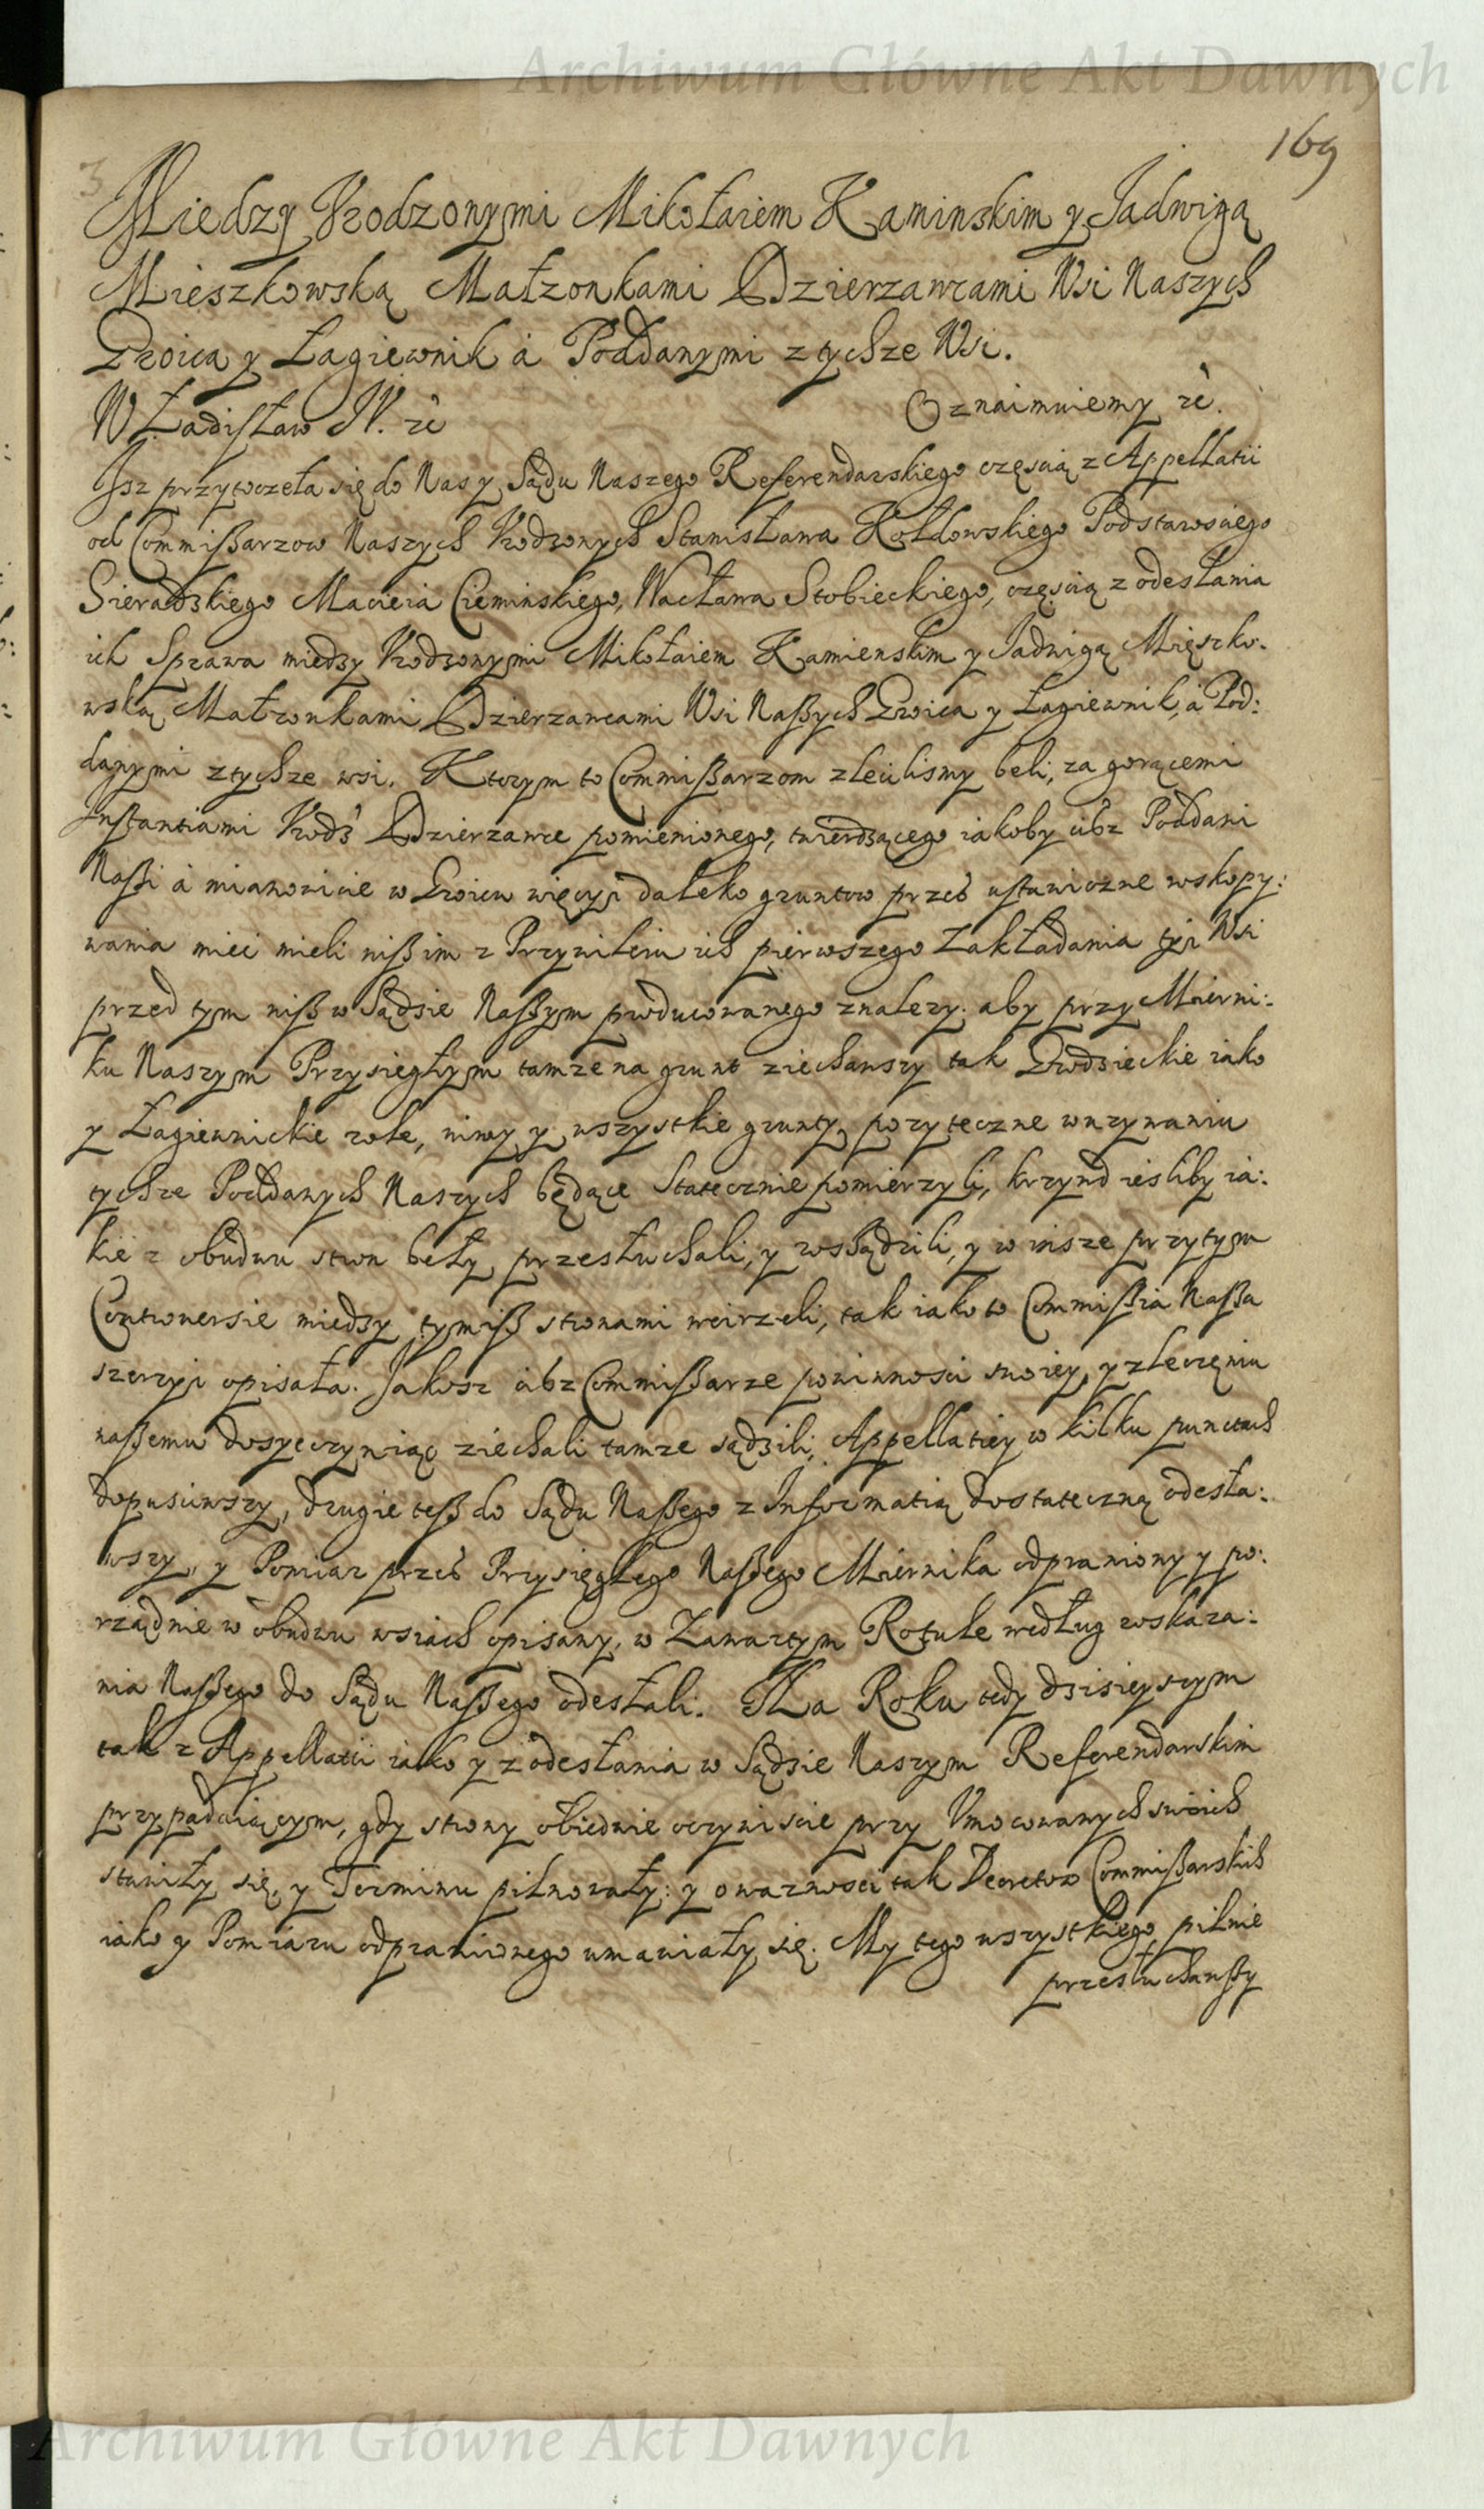 Archiwum Główne Akt Dawnych
169
3
Między Vrodzonymi Mikołaiem Kaminskim y Jadwigą
Mieszkowską Małzonkami Dzierzawcami Wsi Naszych
Zwoica y Łagiewnik à Poddanymi z tychze Wsi.
Władisław IV. rè Oznaimuiemy rè.
Isz przytoczeła się do Nas y Sądu Naszego Referendarskiego częscią z Appellatii
od Commißarzow Naszych Vrodzonych Stanisława Kołdowskiego Podstarosciego
Sieradzkiego Macieia Cieminskiego, Wacława Stobieckiego, częscią z odesłania
ich Sprawa miedzy Vrodzonymi Mikołaiem Kamienskim y Jadwigą Mięszko:
wską Małzonkami Dzierzawcami Wsi Naßych Zwoica y Łagiewnik, à Pod:
danymi z tychze wsi. Ktorym to Commißarzom zlecilismy beli, za gorącemi
Instantiami Vrodz Dzierzawce pomienionego, twierdzącego iakoby cisz Poddani
Naßi à mianowicie w Zwoicu więcyi daleko gruntow przes ustawiczne wskopy:
wania miec mieli niß im z Przywileiu ich pierwszego Zakładania tyi Wsi
przed tym niß w Sądzie Naßym producowanego znalezy. aby przy Mierni:
ku Naszym Przysięgłym tamze na grunt ziechawszy tak Zwodzieckie iako
y Łagiewnickie role, niwy y wszystkie grunty, pozyteczne w uzywaniu
tychze Poddanych Naszych będące Statecznie pomierzyli, krzywd iesliby ia:
kie z obudwu stron beły, przesłuchali, y rossądzili, y w insze przytym
Controuersie miedzy tymiß stronami weirzeli, tak iako to Commißia Naßa
szerzyi opisała. Jakosz cisz Commißarze powinnosci swoiey, y zleceniu
naßemu dosyc czyniąc ziechali tamze sądzili, Appellatiey w kilku punctach
dopusciwszy, drugie teß do Sądu Naßego z Informatią dostateczną odesła:
wszy, y Pomiar przes Przysięgłego Naßego Miernika odprawiony y po:
rządnie w obudwu wsiach opisany, w Zawartym Rotule według roskaza:
nia Naßego do Sądu Naßego odesłali. Na Roku tedy dzisieyszym
tak z Appellatii iako y z odesłania w Sądzie Naszym Referendarskim
przypadaiącym, gdy strony obiedwie oczywiscie przy Vmocowanych swoich
stawiły się, y Terminu pilnowały: y o wazności tak Decretow Commißarskich
iako y Pomiaru odprawionego umawiały się. My tego wszystkiego, pilnie
przesłuchawßy
Archiwum Główne Akt Dawnych